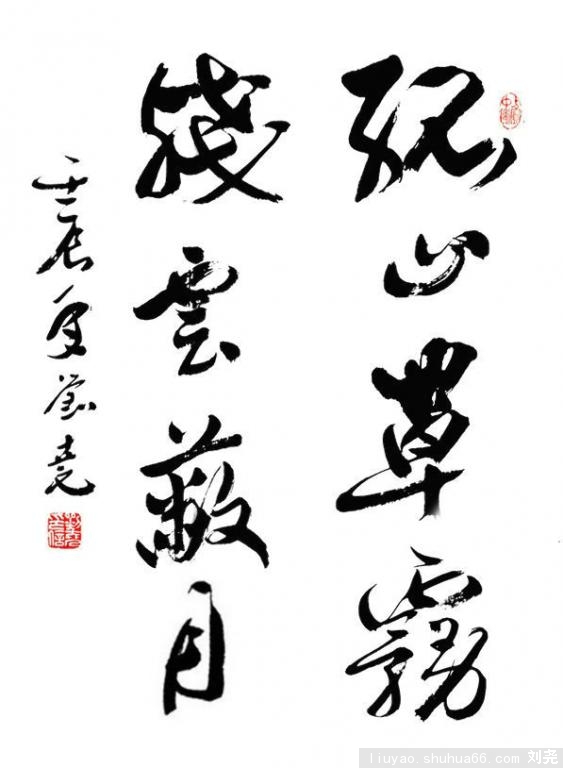 孤山罩霧
殘雲蔽月
壬辰夏劉堯
liuyao.shuhua66.com 刘尧